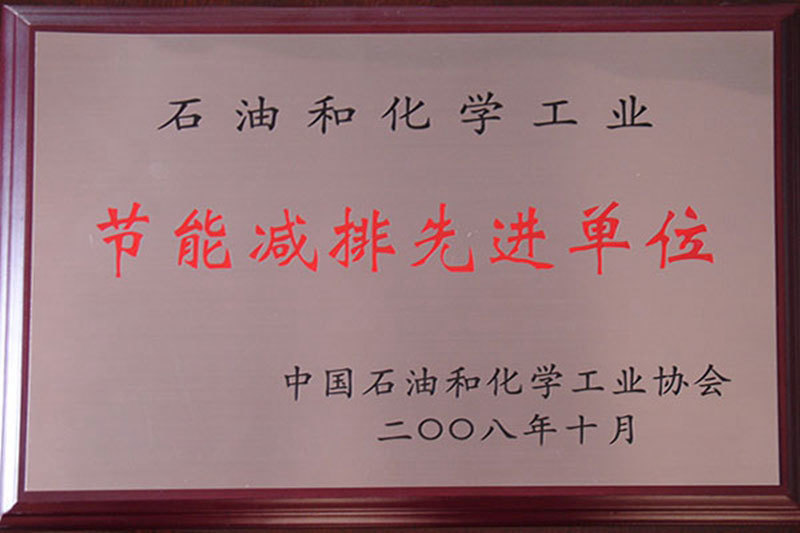 石油和化学工业
节能减排先进单位
中国石油和化学工业协会
二〇〇八年十月